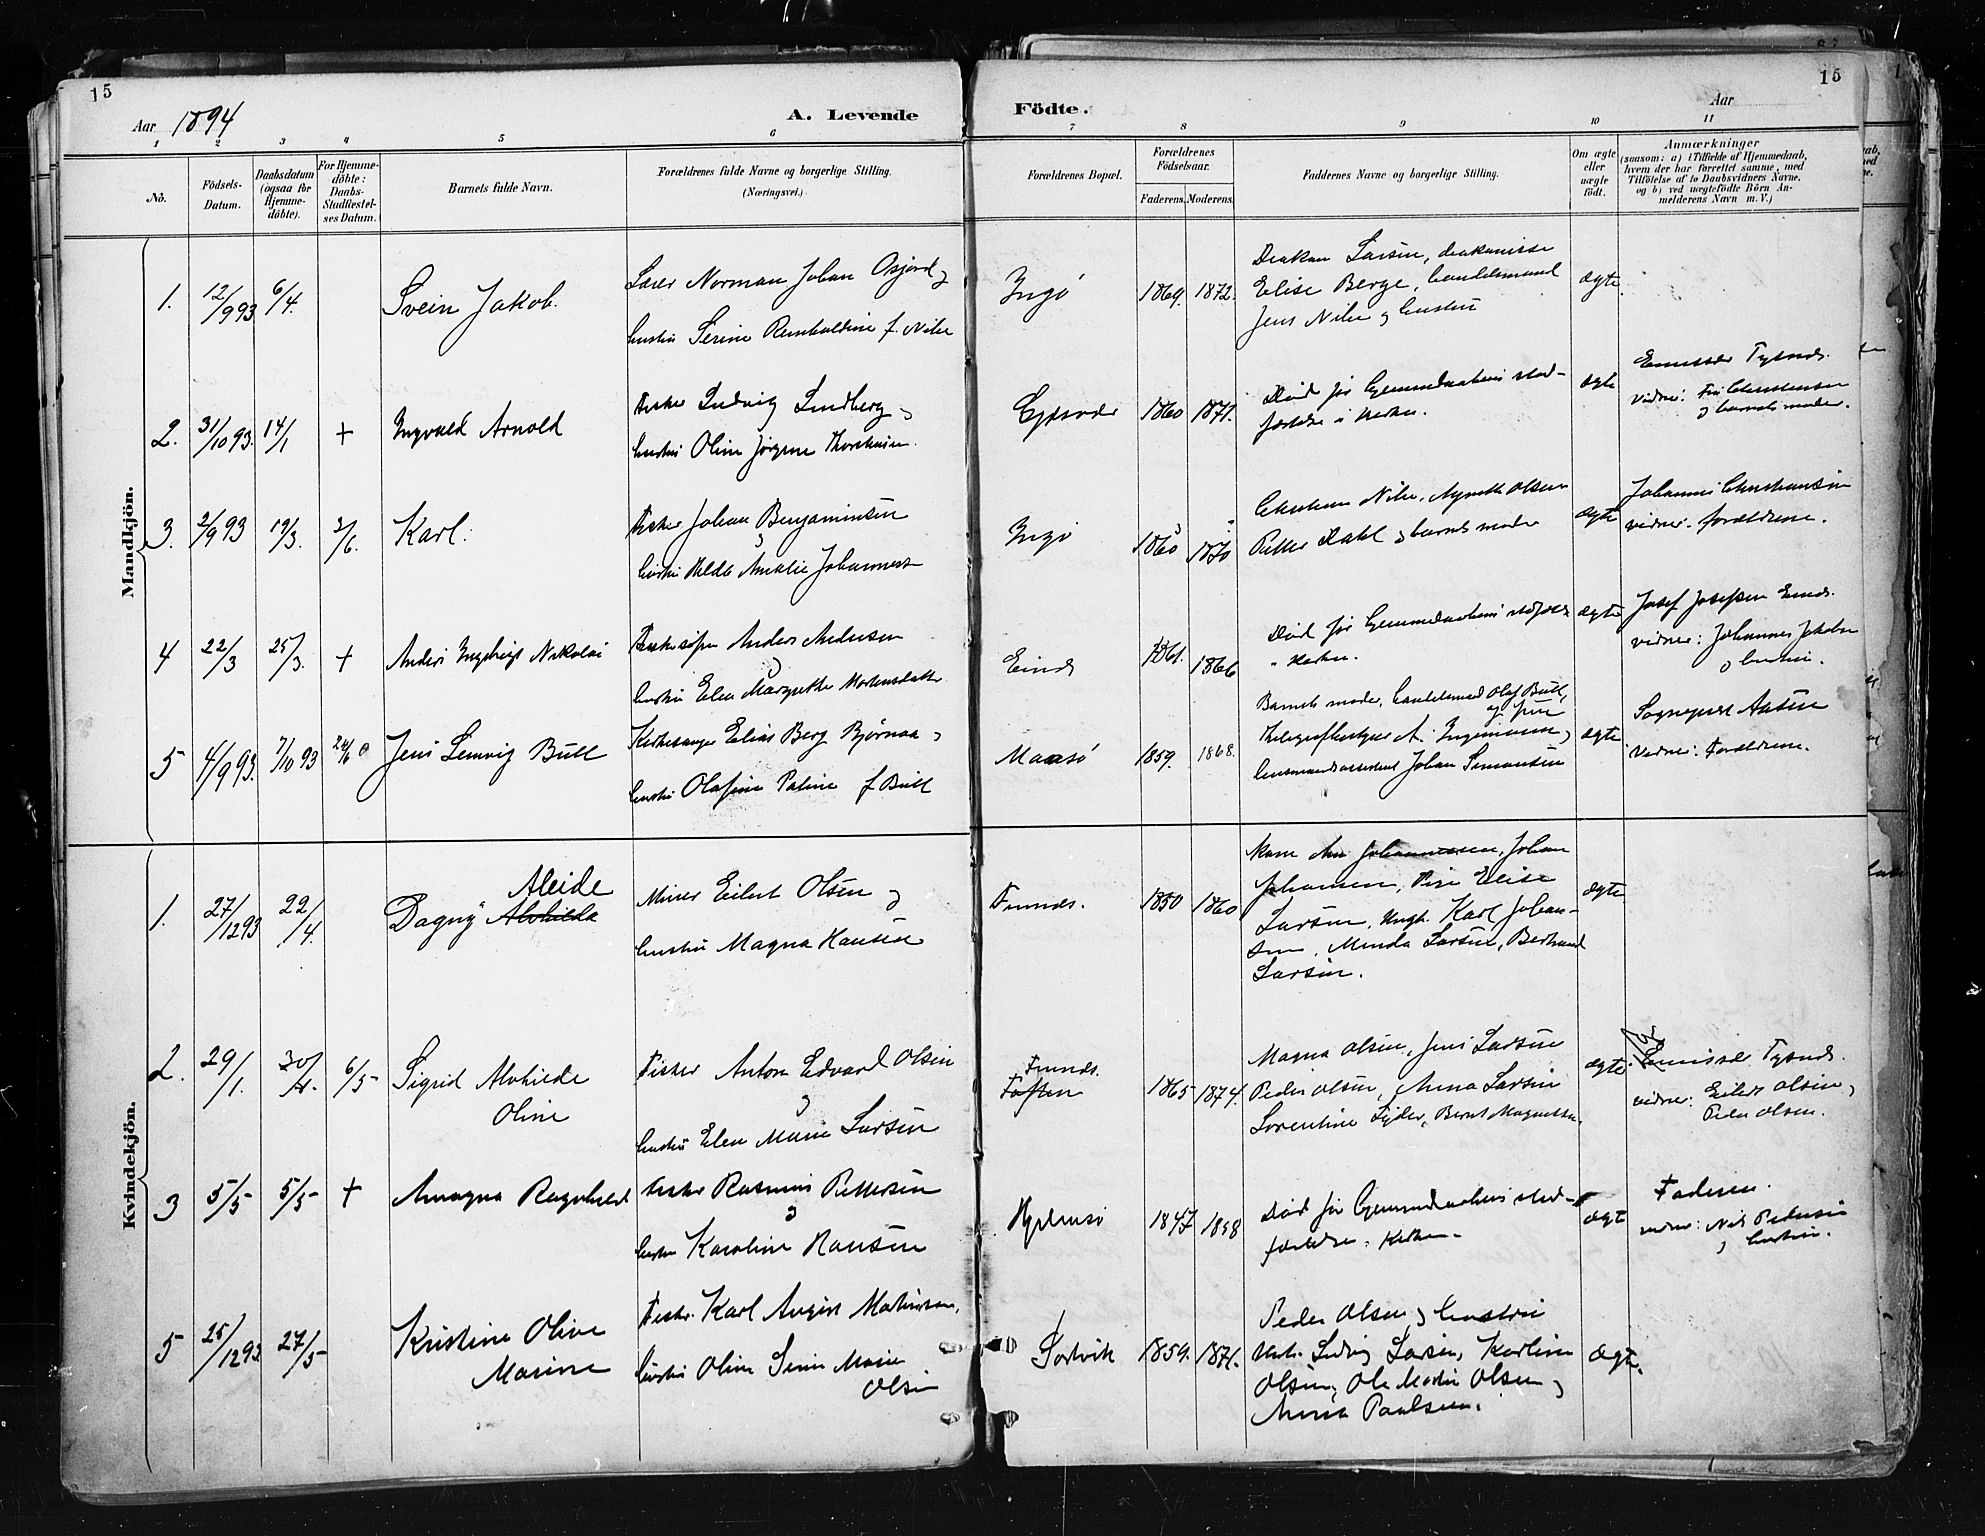 15
15
Aar 1894
A. Levende
Födte.
Aar
1
2
3
4
5
6
7
8
9
10
11
No.
Födsels-
Datum.
Daabsdatum
(ogsaa för
Hjemme-
döbte).
For Hjemme-
döbte:
Daabs-
Stadfæstel-
ses Datum.
Barnets fulde Navn.
Forældrenes fulde Navne og borgerlige Stilling.
(Næringsvei.)
Forældrenes Bopæl.
Forældrenes
Födselsaar.
Faderens.
Moderens.
Faddernes Navne og borgerlige Stilling.
Om ægte
eller
uægte
födt.
Anmærkninger
(saasom: a) i Tilfælde af Hjemmedaab,
hvem der har forrettet samme, med
Tilföielse af to Daabsvidners Navne.
og b) ved uægtefödte Börn An-
melderens Navn m. V.)
Mandkjön.
1. 12/9 93 6/4. Svein Jakob.
Lærer Norman Johan Osjord og
hustru Serine Reinholdine f. Nilse
Ingö 1869. 1872.
Diakon Larsen, diakonisse
Elise Berge, handelsmand
Jens Nilse og hustru
ægte
2. 31/10 93. 14/1 + Ingvald Arnold
Fisker Ludvig Lindberg og
hustru Oline Jörgine
1860 1871.
Död för Hjemmedaabens stad-
fæstelse i Kirken.
ægte
Tysnds.
vidner: Fru Christensen
og barnets moder.
3. 2/9 93 19/3. 3/6. Karl.
Fisker Johan Benjaminsen
og
hustru Hilda Amalie Johannesd
Ingö 1860 1870
Nilse, Agnethe Olsen
Petter Dahl og barnets moder
ægte
Johannes Christiansen
vidner. forældrene.
4 22/3 25/3. + Anders Ingebrigt Nikolai
Anders Andersen
og
hustru Elen Margrethe Mortensdatter
1861. 1866
Död för Hjemmedaabens stadfæst
i Kirken.
ægte
Josef Josefsen
vidner: Johannes Jakobsen
og hustru.
5 4/9 93. 7/10 93 24/6 Jens Lemvig Bull
Kirkesanger Elias Berg Björnaa og
hustru Olafine Petrine f Bull
Maasö 1859. 1868.
Barnets moder, handelsmand Olaf Bull,
og frue
Telegrafbestyrer A. Ingemann og
lensmandsassistent Johan Simonsen
ægte
Sogneprest Aasen
Vidner: Forældrene.
Kvindekjön.
1. 27/12 93 22/4. Dagny Alvhilde
Aleide
Miner Eilert Olsen og
hustru Magna Hansen
1850 1860
Johannessen, Johan
Johansen, Pige Elise
Larsen, Ungk. Karl Johan-
sen, Minda Larsen, Bertrand
Larsen.
ægte
2. 29/1. 30/4. 6/5 Sigrid Alvhilde
Oline
Fisker Anton Edvard Olsen
og
hustru Elen Marie Larsen
1865 1874.
Magna Olsen, Jens Larsen
Peder Olsen, Anna Larsen
Lorentine Lyder, Bernt Magnussen.
ægte.
Tysnds.
vidner: Eilert Olsen og
Peder Olsen.
3 5/5 5/5 + Amagna Ragnhild
Fisker Rasmus Pettersen
og
hustru Karoline Hansen
Hjelmsö 1847
Död för Hjemmedaabens stad-
fæstelse i Kirken.
ægte
Faderen.
vidner: Nils Pedersen
og hustru.
5 25/12 93. 27/5 Kristine Olive
Marine
Fisker Karl August Mathisen,
hustru Oline Marie
Olsen
1859. 1871.
Peder Olsen og hustru
Ungk. Ludvig Larsen, Karline
Olsen, Ole Martin Olsen og
Anna Paulsen.
ægte.